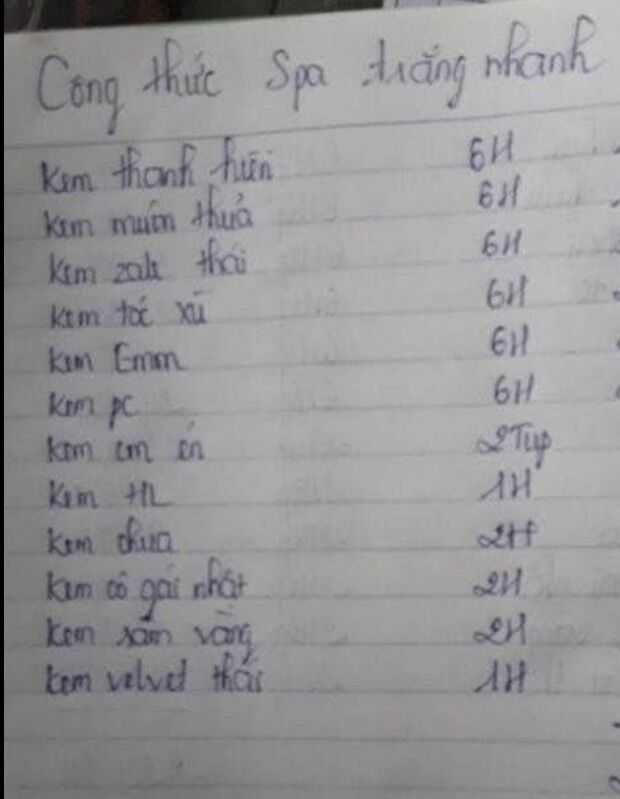 Công thức Spa trắng nhanh
Kem thanh hiền 6H
Kem muôn thuở 6H
Kem zale thái 6H
Kem tóc xù 6H
Kem Emm 6H
Kem pc 6H
Kem em én 2Tup
Kem HL 1H
Kem chua 2H
Kem cô gái nhật 2H
Kem sâm vàng 2H
Kem velvet thái 1H